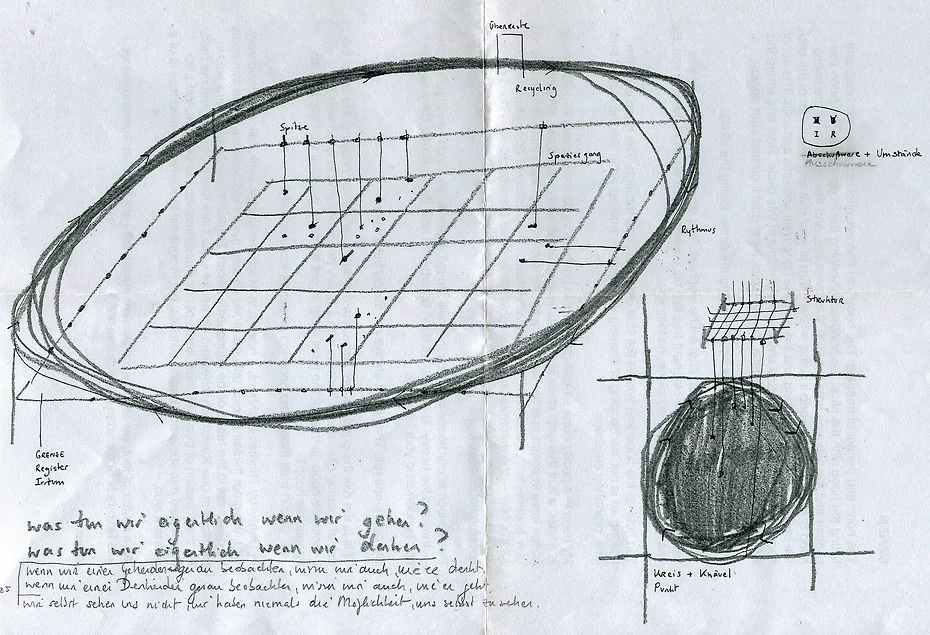 Überreste
Recycling
Spitze
Spaziergang
I R
+ Umstände
Rythmus
Struktur
GRENZE
Register
Irrtum
was tun wir eigentlich wenn wir gehen?
was tun wir eigentlich wenn wir denken?
wenn wir einen Gehenden genau beobachten, wissen wir auch, wie er denkt.
wenn wir einen Denkenden genau beobachten, wissen wir auch, wie er geht
wir selbst sehen uns nicht, wir haben niemals die Möglichkeit, uns selbst zu sehen.
Kreis + Knäuel
Punkt